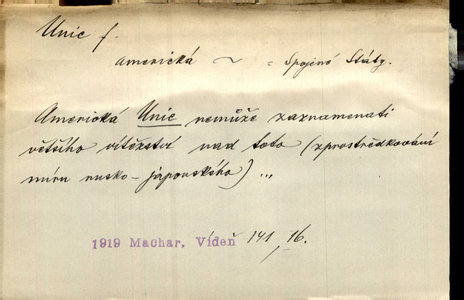 Unie f.
Americká ~ = Spojené Státy.
Americká Unie nemůže zaznamenati
většího vítězství nad toto (zprostředkování
míru rusko-japonského) ...
1919 Machar, Vídeň 141, 16.